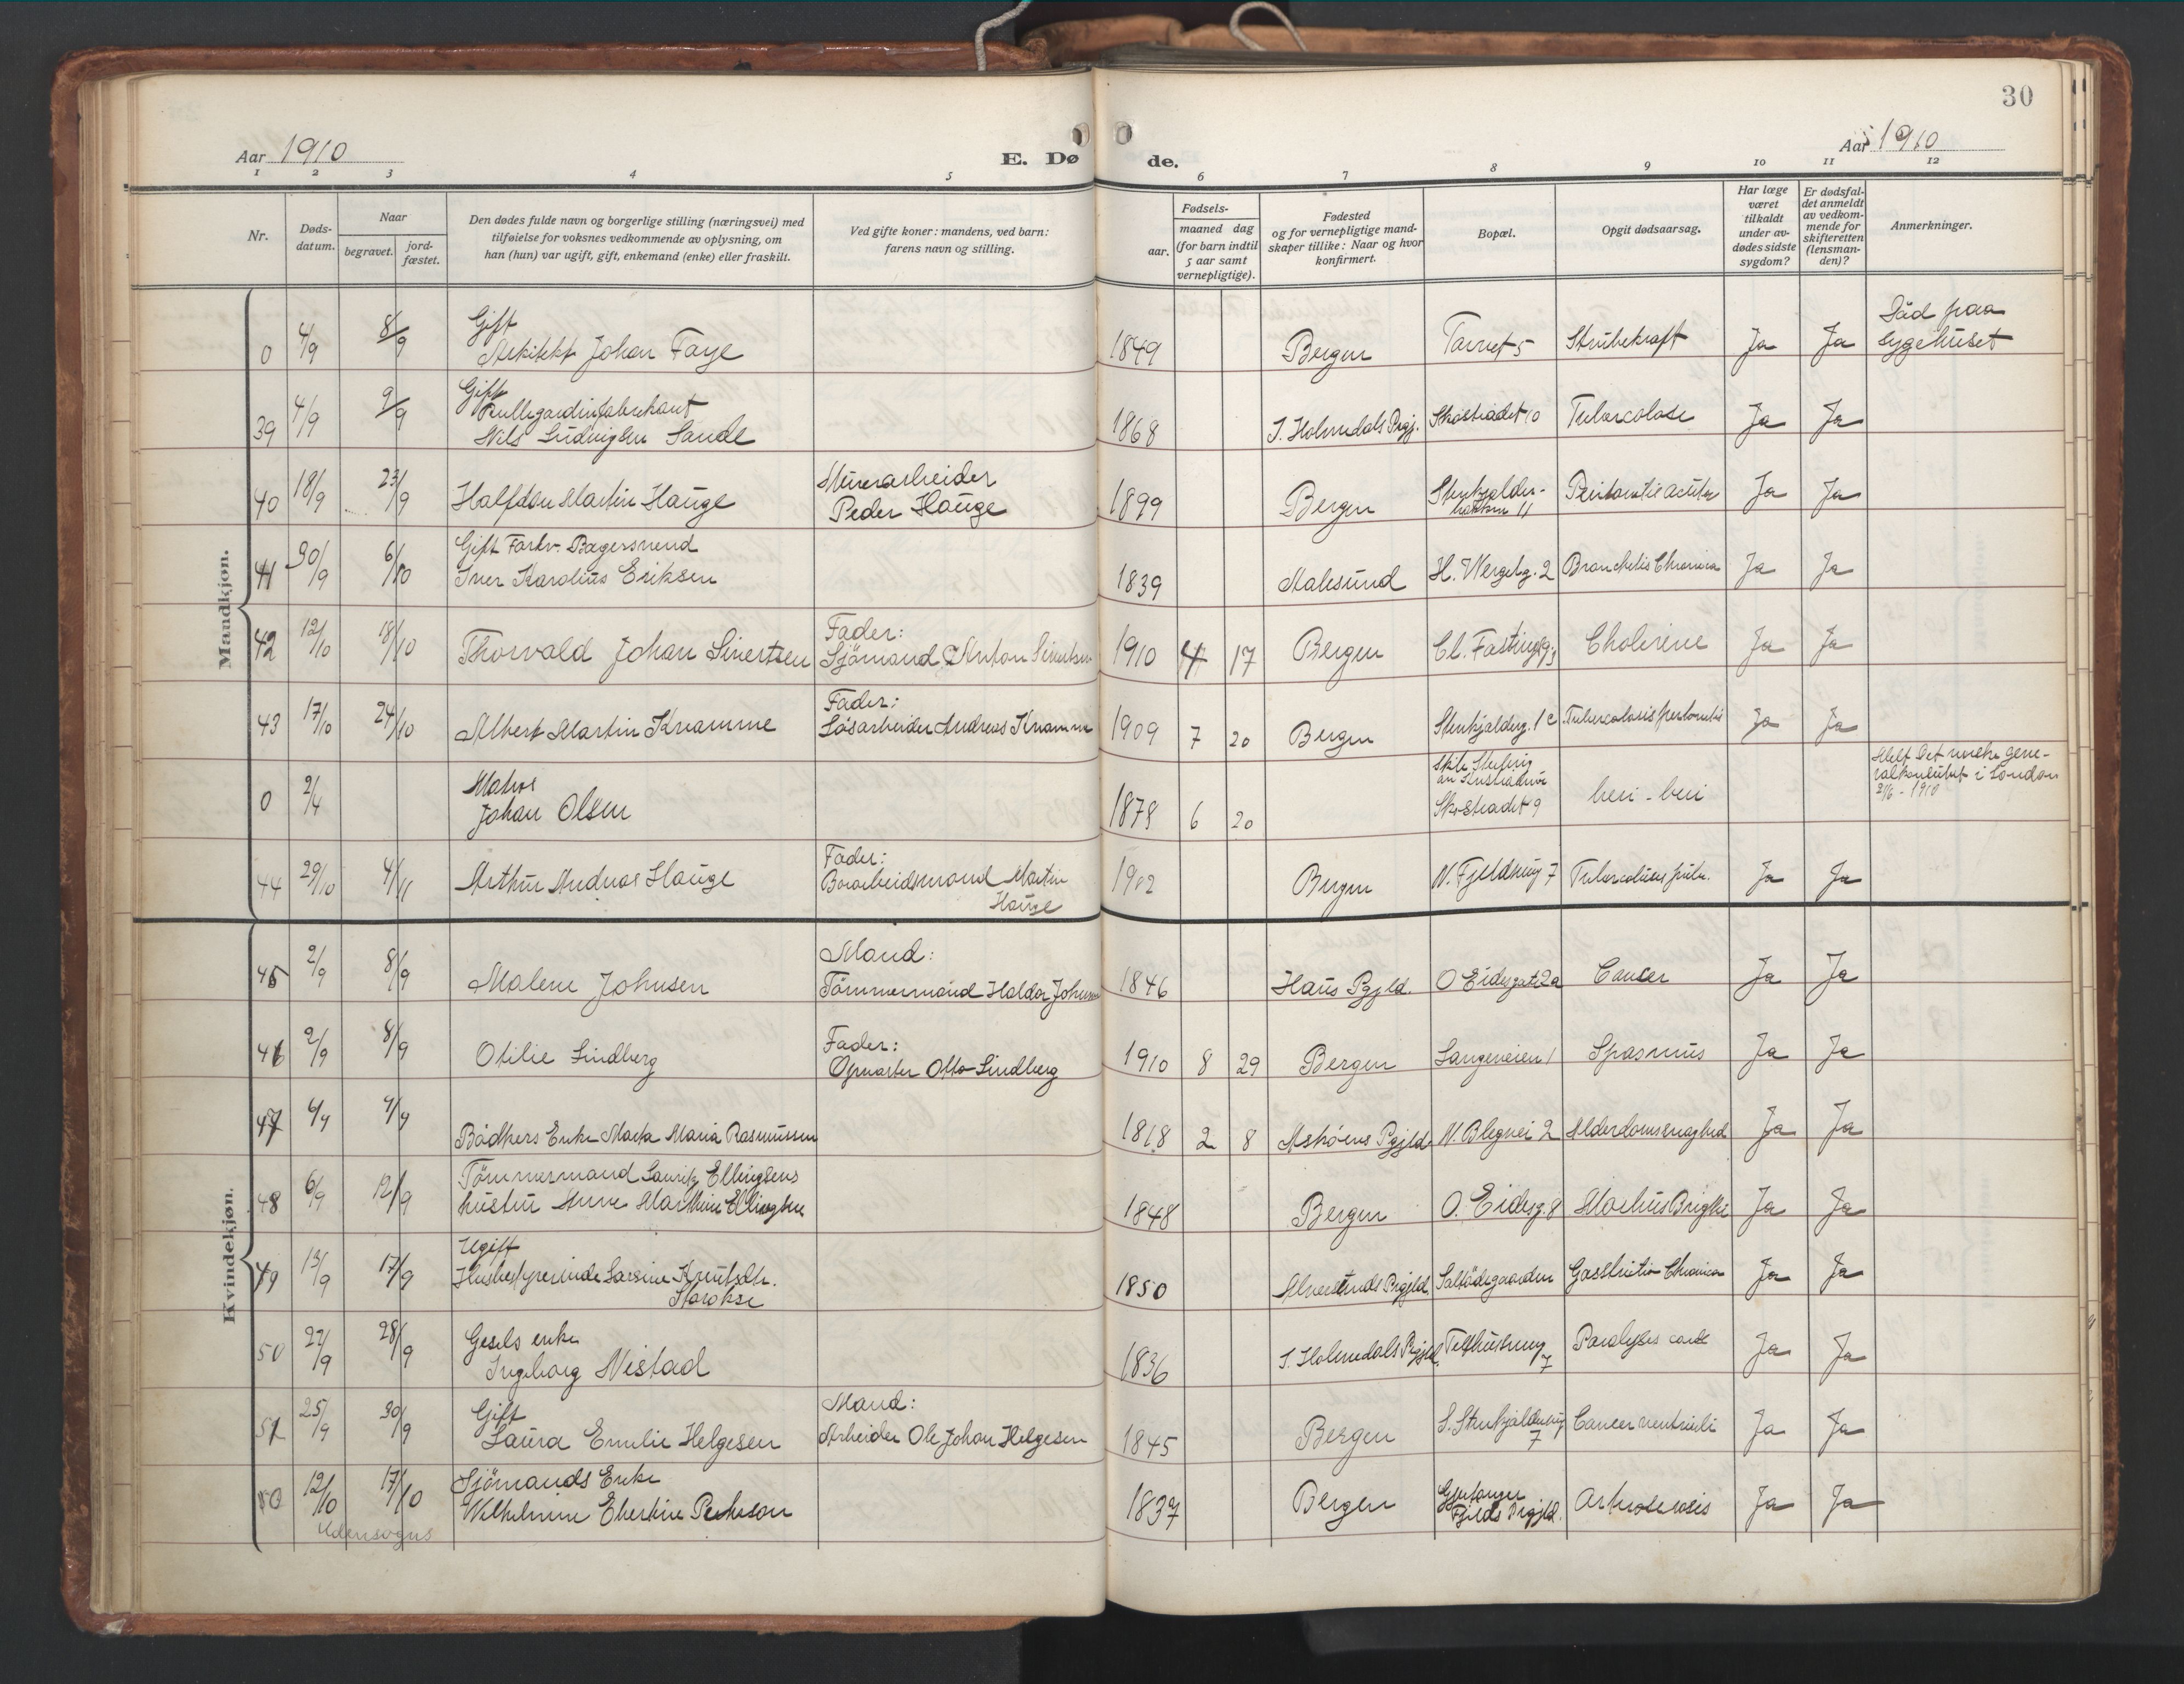 30
Aar 1910
E. Dø
de.
Aar 1910
1 2 3 4 5 6 7 8 9 10 11 12
Nr.
Døds-
datum.
Naar
begravet.
jord-
fæstet.
Den dødes fulde navn og borgerlige stilling (næringsvei) med
tilføielse for voksnes vedkommende av oplysning, om
han (hun) var ugift, gift, enkemand (enke) eller fraskilt.
Ved gifte koner: mandens, ved barn:
farens navn og stilling.
Fødsels-
aar.
maaned dag
(for barn indtil
5 aar samt
vernepligtige).
Fødested
og for vernepligtige mand-
skaper tillike: Naar og hvor
konfirmert.
Bopæl.
Opgit dødsaarsag.
Har læge
været
tilkaldt
under av-
dødes sidste
sygdom?
Er dødsfal-
det anmeldt
av vedkom-
mende for
skifteretten
(lensman-
den)?
Anmerkninger.
Mandkjøn.
0 4/9 8/9 Gift
Arkitekt Johan Faye 1849 Bergen Torvet 5 Strubekræft Ja Ja Död paa
Sygehuset
39 4/9 9/9 Gift
Rullegardinfabrikant
Nils Ludvigsen Sande 1868 I. Holmedals Prgj. Skostrædet 10 Tuberculose Ja Ja
40 18/9 23/9 Halfdan Martin Hauge Murerarbeider
Peder Hauge 1899 Bergen Stenkjelder-
bakken 11 Peritonitis acuta Ja Ja
41 30/9 6/10 Gift Forhv. Bagersvend
Iver Karolius Eriksen 1839 Aalesund H. Wergelg. 2 Bronchitis Chronica Ja Ja
42 12/10 18/10 Thorvald Johan Sivertsen Fader:
Sjömand Anton Sivertsen 1910 4 17 Bergen Cl. Fastingsg. Cholerine Ja Ja
43 17/10 24/10 Albert Martin Kvamme Fader:
Løsarbeider Andreas Kvamme 1909 7 20 Bergen Stenkjelderg. 1c Tuberculosis peritonitis Ja Ja
0 2/4 Matros
Johan Olsen 1878 6 20 Skostrædet 9 beri-beri generalkonsulat i London
2/6 - 1910
44 29/10 4/11 Arthur Andreas Hauge Fader:
Martin
Hauge 1902 Bergen N. Fjeldsmug 7 Tuberculosis pulm. Ja Ja
Kvindekjøn.
45 2/9 8/9 Malene Johnsen Mand:
Tömmermand Haldor Johnsen 1846 Haus Pgjld. O Eidsgate 2a Cancer Ja Ja
46 2/9 8/9 Otilie Lindberg Fader:
Otto Lindberg 1910 8 29 Bergen Langeveien 1 Spasmus Ja Ja
47 4/9 9/9 Bödkers Enke Marta Maria Rasmussen 1818 2 8 Askøens Pgjld. N. Blegvei 2 Alderdomssvaghed Ja Ja
48 6/9 12/9 Tömmermand Lauritz Ellingsens
hustru Anne Marthine Ellingsen 1848 Bergen O. Eidsg. 8 Morbus Brightii Ja Ja
49 13/9 17/9 Ugift
Husbestyrerinde Larsine Knutsdtr. 1850 Alversunds Prgjld. Saltödegaarden Gastritis Chronica Ja Ja
50 22/9 28/9 Gesels enke
Ingeborg Nistad 1836 I. Holmedals Prgjld. Telthusmug
7 Paralysis cord. Ja Ja
51 25/9 30/9 Gift
Laura Emilie Helgesen Mand:
Arbeider Ole Johan Helgesen 1845 Bergen S. Stenkjeldsmug
7 Cancer ventriculi Ja Ja
50 12/10 17/10 Sjömands Enke
Wilhelmine Ebertine 1837 Bergen Prgjld. Ja Ja
Udensogns